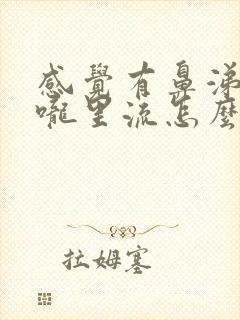 感覺有鼻涕
嚨里流怎麼
拉姆塞